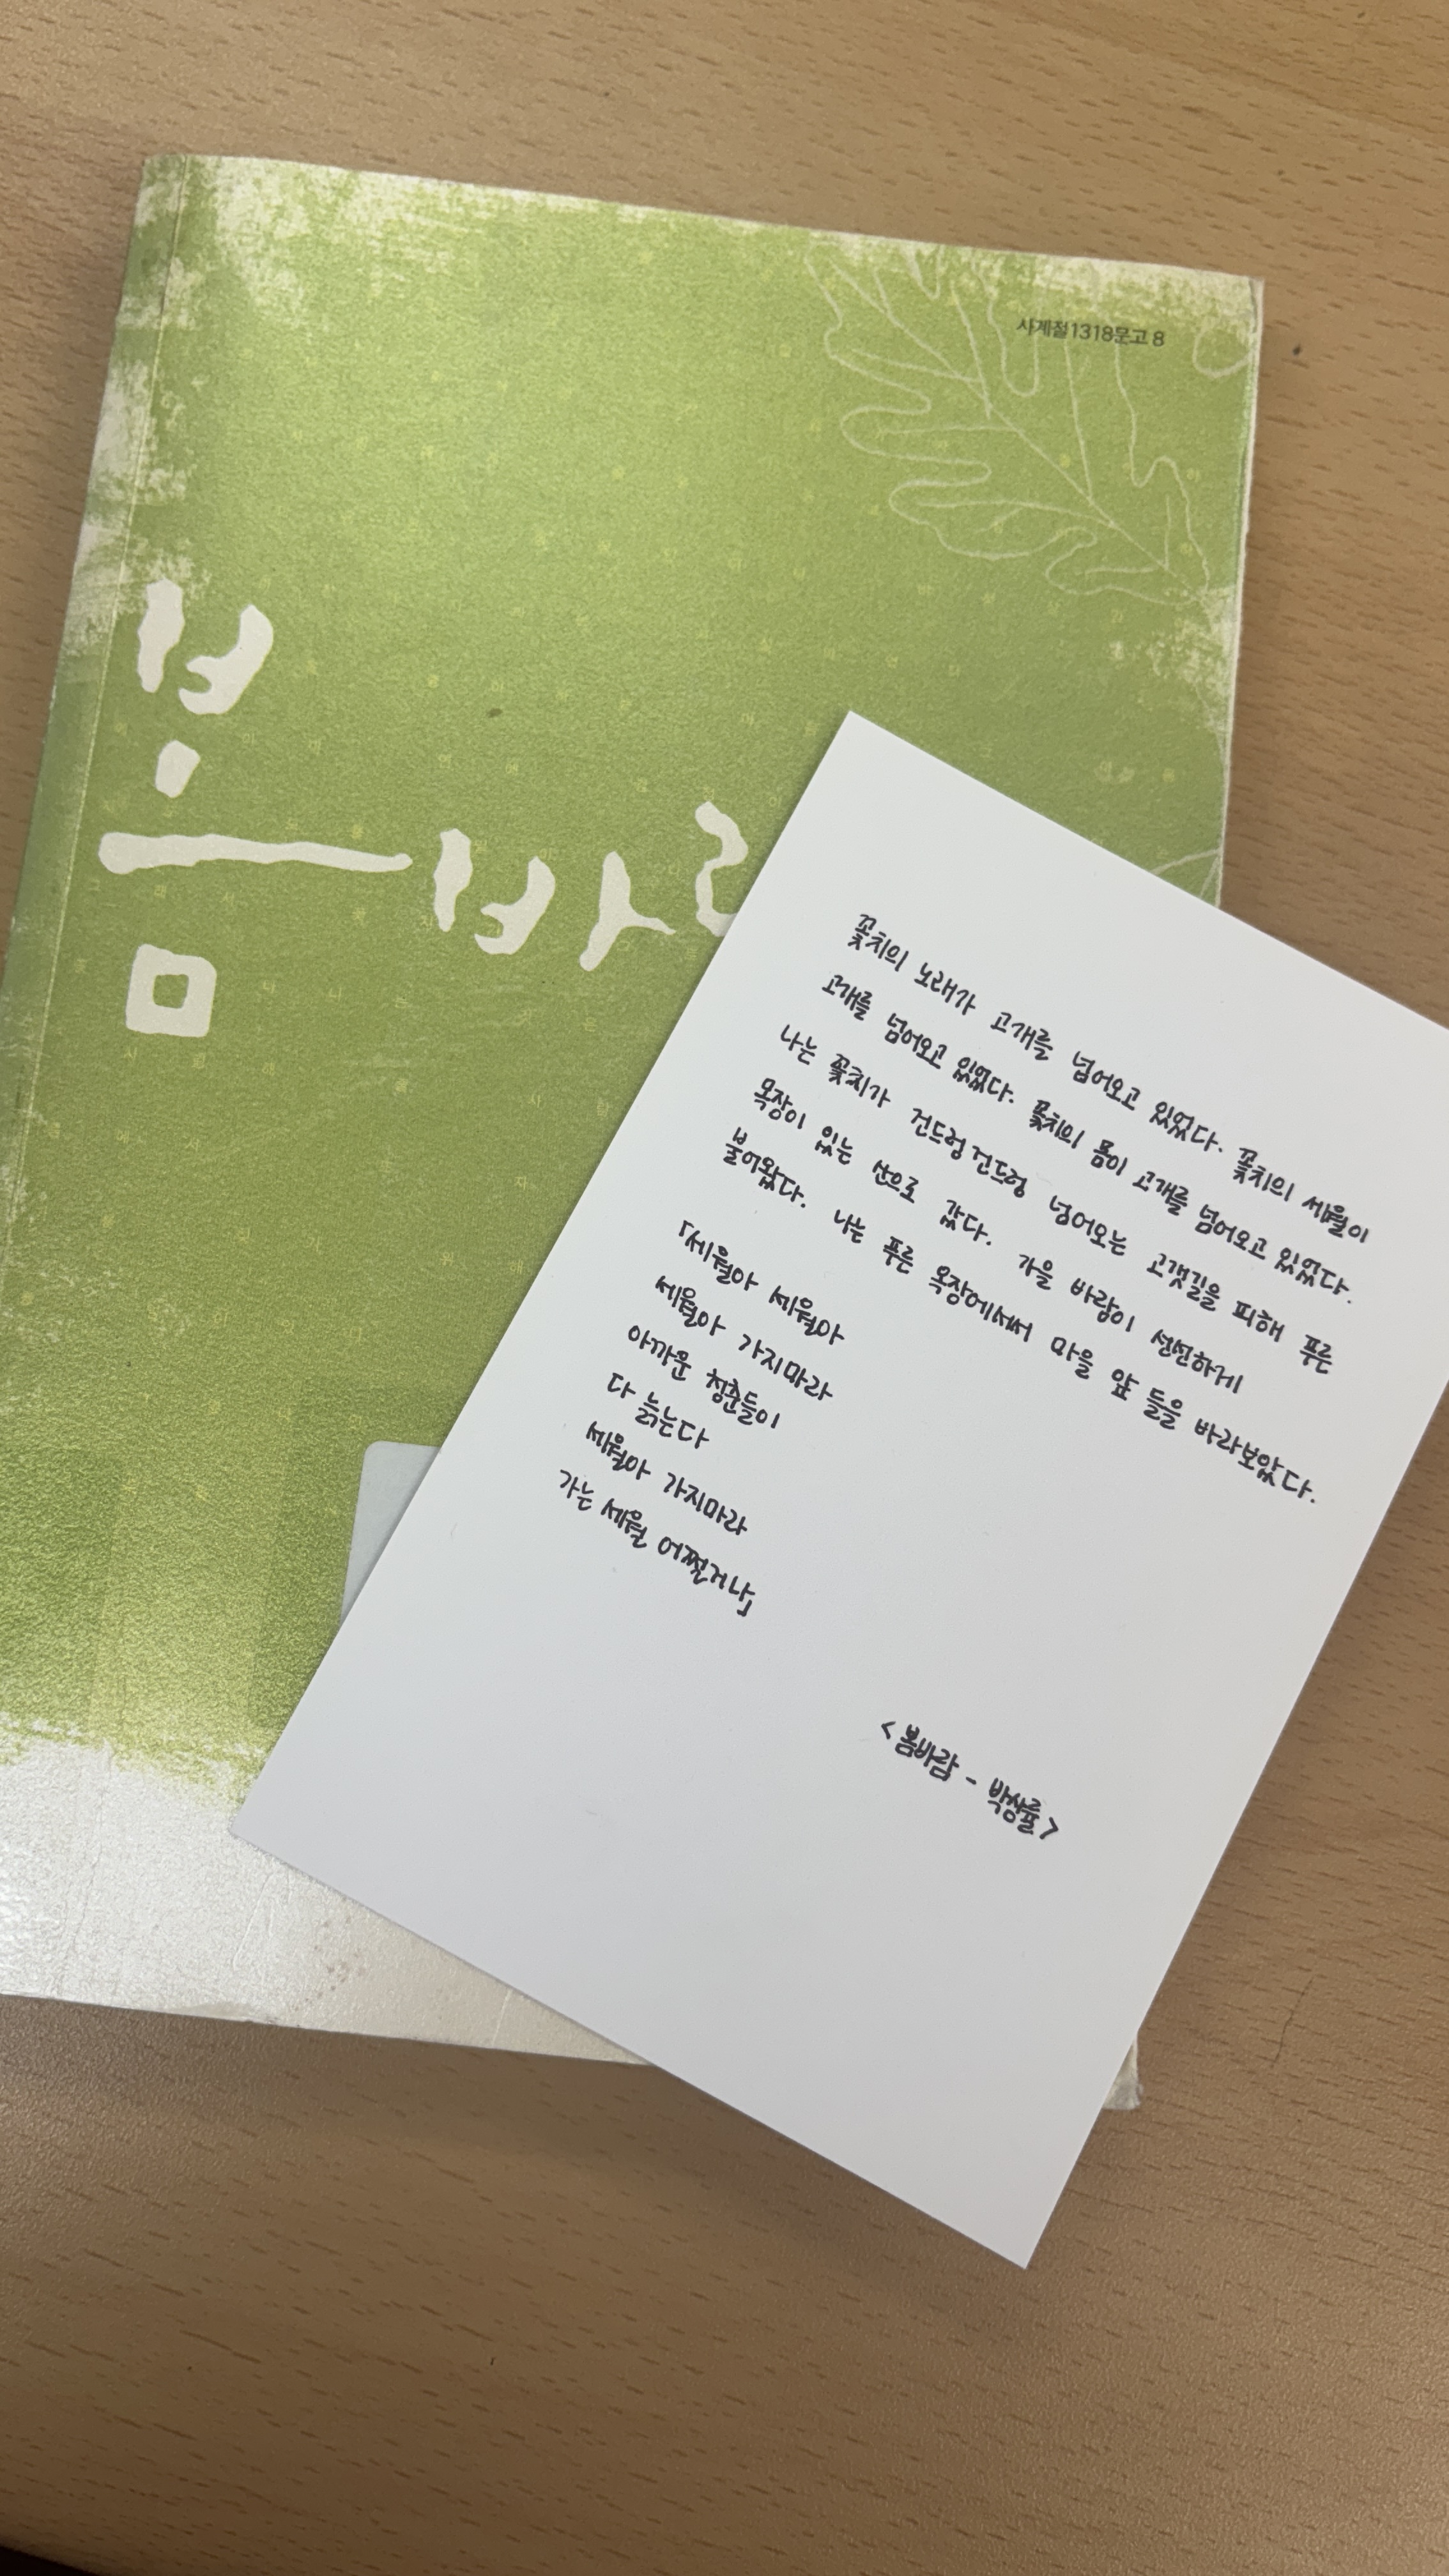 사계절1318문고 8
봄바
꽃치의 노래가 고개를 넘어오고 있었다. 꽃치의 세월이
고개를 넘어오고 있었다. 꽃치의 몸이 고개를 넘어오고 있었다.
나는 꽃치가 건드렁건드렁 넘어오는 고갯길을 피해 푸른
목장이 있는 산으로 갔다. 가을 바람이 선선하게
불어왔다. 나는 푸른 목장에서서 마을 앞 들을 바라보았다.
「세월아 세월아
세월아 가지마라
아까운 청춘들이
다 늙는다
세월아 가지마라
가는 세월 어쩔거나」
< 봄바람 - 박상률>